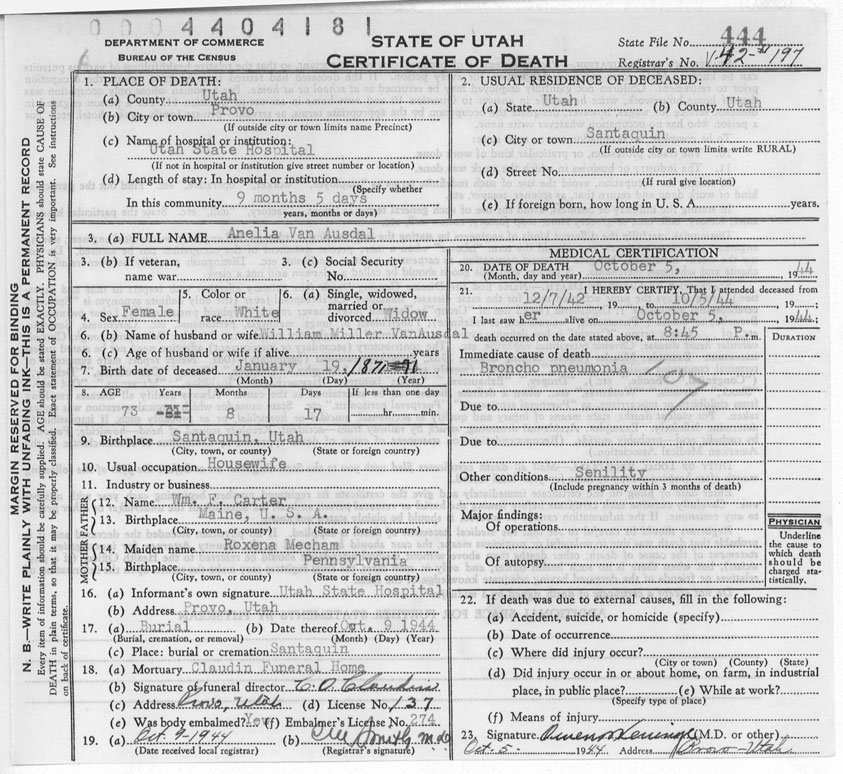 0004404181
DEPARTMENT OF COMMERCE
BUREAU OF THE CENSUS
STATE OF UTAH
CERTIFICATE OF DEATH
State File No. 444
Registrar's No. V-42-197
MARGIN RESERVED FOR BINDING
N. B.—WRITE PLAINLY WITH UNFADING INK—THIS IS A PERMANENT RECORD
Every item of information should be carefully supplied. AGE should be stated EXACTLY. PHYSICIANS should state CAUSE OF
DEATH in plain terms, so that it may be properly classified. Exact statement of OCCUPATION is very important. See instructions
on back of certificate.
1. PLACE OF DEATH:
(a) County Utah
(b) City or town Provo
(If outside city or town limits name Precinct)
(c) Name of hospital or institution:
Utah State Hospital
(If not in hospital or institution give street number or location)
(d) Length of stay: In hospital or institution
(Specify whether
In this community 9 months 5 days
years, months or days)
2. USUAL RESIDENCE OF DECEASED:
(a) State Utah (b) County Utah
(c) City or town Santaquin
(If outside city or town limits write RURAL)
(d) Street No.
(If rural give location)
(e) If foreign born, how long in U. S. A. years.
3. (a) FULL NAME Anelia Van Ausdal
3. (b) If veteran,
name war
3. (c) Social Security
No.
4. Sex Female
5. Color or
race White
6. (a) Single, widowed,
married or
divorced Widow
6. (b) Name of husband or wife William Miller VanAusdal
6. (c) Age of husband or wife if alive years
7. Birth date of deceased January 19, 1871
(Month) (Day) (Year)
8. AGE Years Months Days If less than one day
73 8 17 hr. min.
9. Birthplace Santaquin, Utah
(City, town, or county) (State or foreign country)
10. Usual occupation Housewife
11. Industry or business
FATHER
12. Name Wm. F. Carter
13. Birthplace Maine, U. S. A.
(City, town, or county) (State or foreign country)
MOTHER
14. Maiden name Roxena Mecham
15. Birthplace Pennsylvania
(City, town, or county) (State or foreign country)
16. (a) Informant's own signature Utah State Hospital
(b) Address Provo, Utah
17. (a) Burial (b) Date thereof Oct. 9 1944
(Burial, cremation, or removal) (Month) (Day) (Year)
(c) Place: burial or cremation Santaquin
18. (a) Mortuary Claudin Funeral Home
(b) Signature of funeral director C. O. Claudin
(c) Address Provo, Utah (d) License No. 137
(e) Was body embalmed? Yes (f) Embalmer's License No. 274
19. (a) Oct. 9-1944 (b) Smith, M.D.
(Date received local registrar) (Registrar's signature)
MEDICAL CERTIFICATION
20. DATE OF DEATH October 5, 1944
(Month, day and year)
21. I HEREBY CERTIFY, That I attended deceased from
12/7/42 19 to 10/5/44 19 ;
I last saw her alive on October 5, 1944;
death occurred on the date stated above, at 8:45 P. m.
DURATION
Immediate cause of death
Broncho pneumonia
107
Due to
Due to
Other conditions Senility
(Include pregnancy within 3 months of death)
Major findings:
Of operations
Of autopsy
PHYSICIAN
Underline
the cause to
which death
should be
charged sta-
tistically.
22. If death was due to external causes, fill in the following:
(a) Accident, suicide, or homicide (specify)
(b) Date of occurrence
(c) Where did injury occur?
(City or town) (County) (State)
(d) Did injury occur in or about home, on farm, in industrial
place, in public place? (e) While at work?
(Specify type of place)
(f) Means of injury
23. Signature (M.D. or other)
Oct-5- 1944 Address Provo-Utah